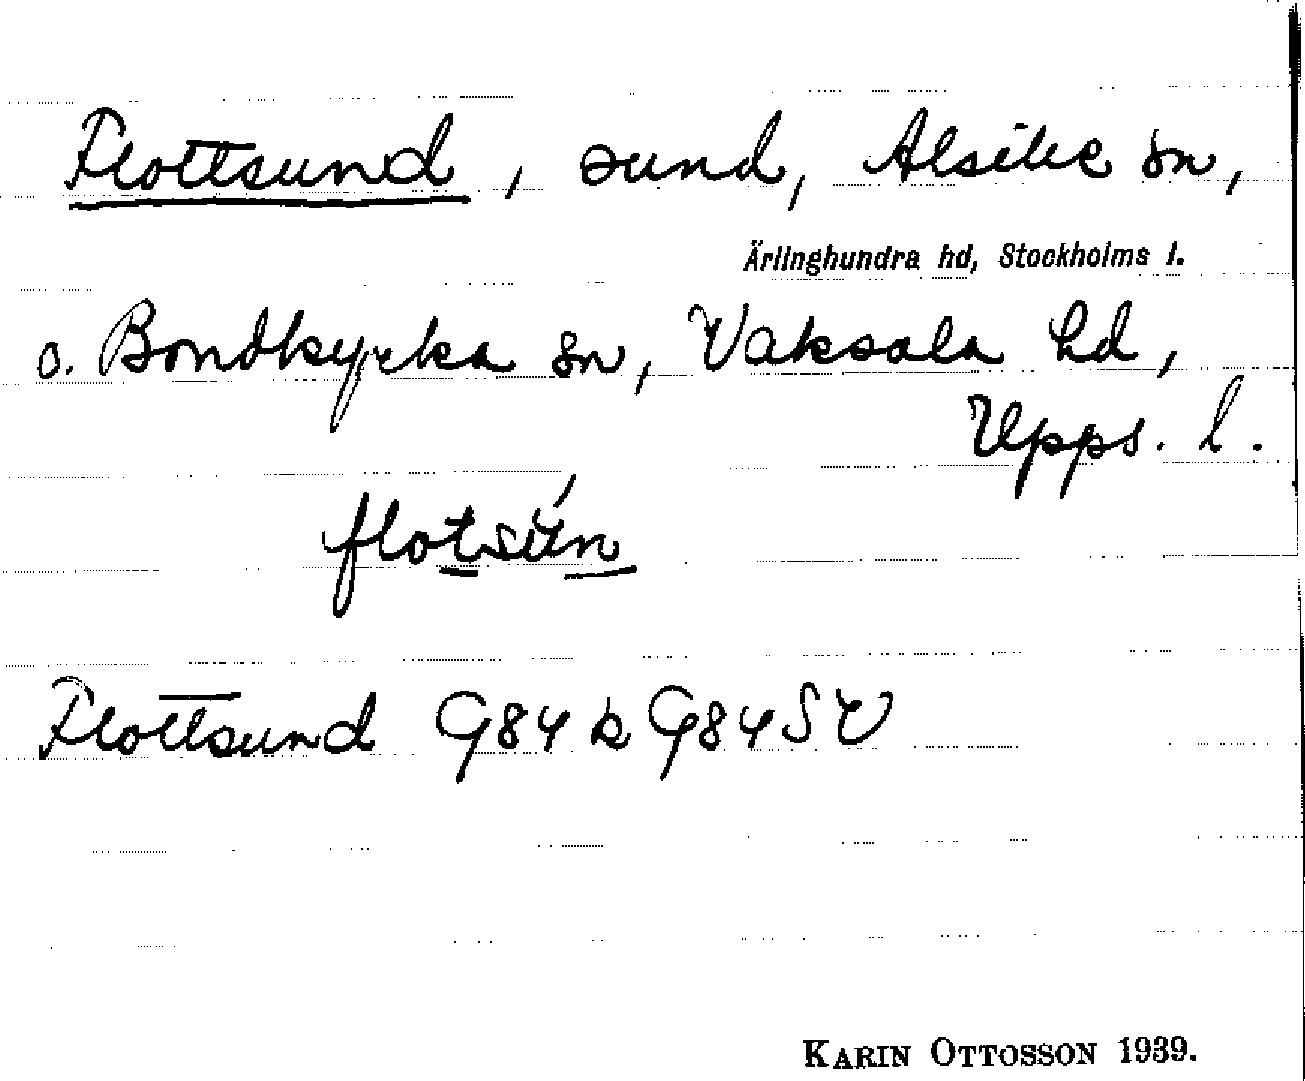 Flottsund, sund, Alsike sn,
Ärlinghundra hd, Stockholms l.
o. Bondkyrka sn, Vaksala hd,
Upps. l.
flotsún
Flottsund G84 k G84SV
KARIN OTTOSSON 1939.